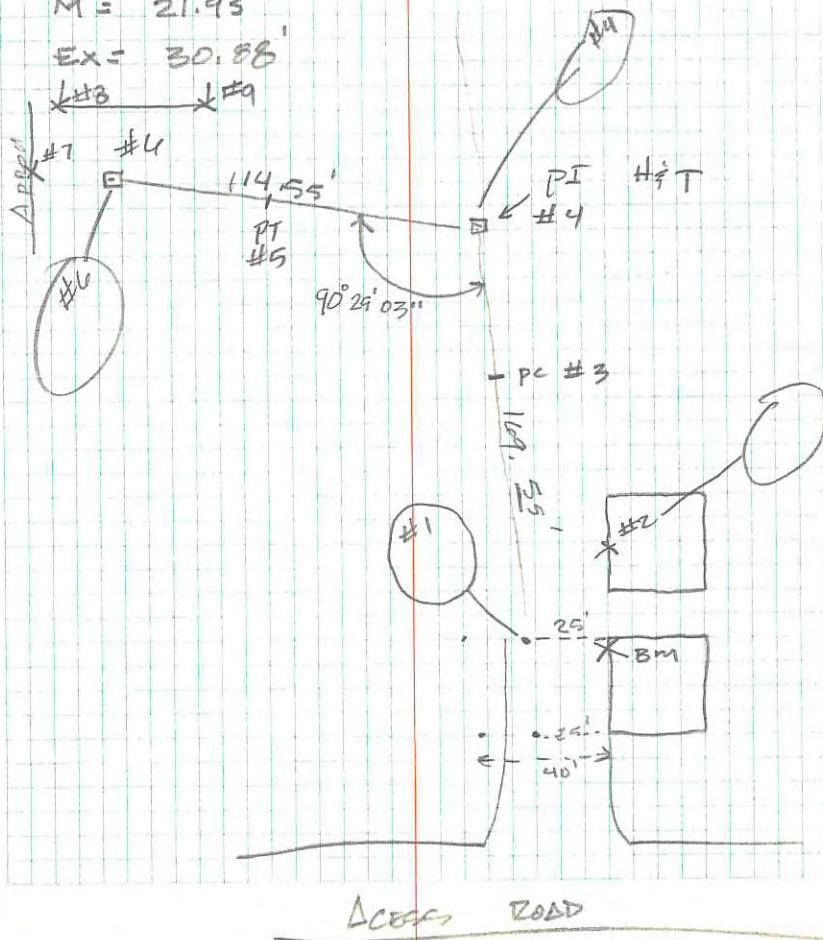 M = 21.95
EX = 30.88'
#8 #9
#4
#7 #4
114.55'
PI H&T
#4
PT
#5
#6
90°29'03"
PC #3
169.55'
#1
#2
25'
BM
25'
40'
ACESS ROAD